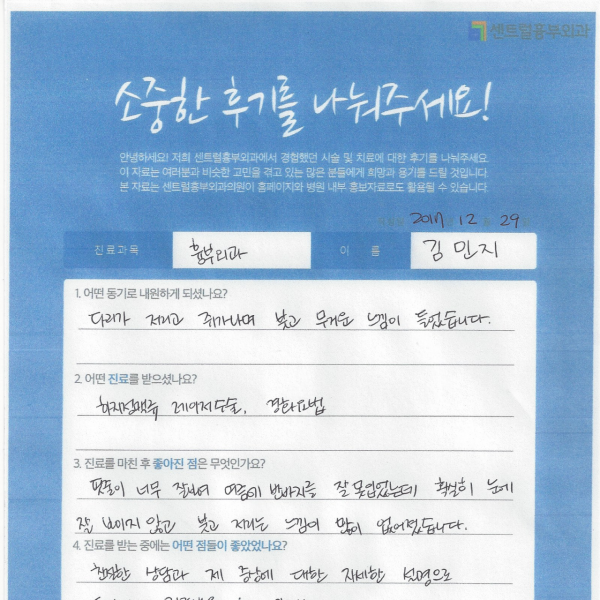 센트럴흉부외과
소중한 후기를 나눠주세요!
안녕하세요! 저희 센트럴흉부외과에서 경험했던 시술 및 치료에 대한 후기를 나눠주세요.
이 자료는 여러분과 비슷한 고민을 겪고 있는 많은 분들에게 희망과 용기를 드릴 것입니다.
본 자료는 센트럴흉부외과의원이 홈페이지와 병원 내부 홍보자료로도 활용될 수 있습니다.
2017 12 29
진료과목 흉부외과 이 름 김민지
1. 어떤 동기로 내원하게 되셨나요?
다리가 저리고 쥐가나며 붓고 무거운 느낌이 들었습니다.
2. 어떤 진료를 받으셨나요?
하지정맥류 레이저수술, 경화요법
3. 진료를 마친 후 좋아진 점은 무엇인가요?
핏줄이 너무 잘보여 여름에 반바지를 잘 못입었는데 확실히 눈에
잘 보이지 않고 붓고 저리는 느낌이 많이 없어졌습니다.
4. 진료를 받는 중에는 어떤 점들이 좋았었나요?
친절한 상담과 제 증상에 대한 자세한 설명으로